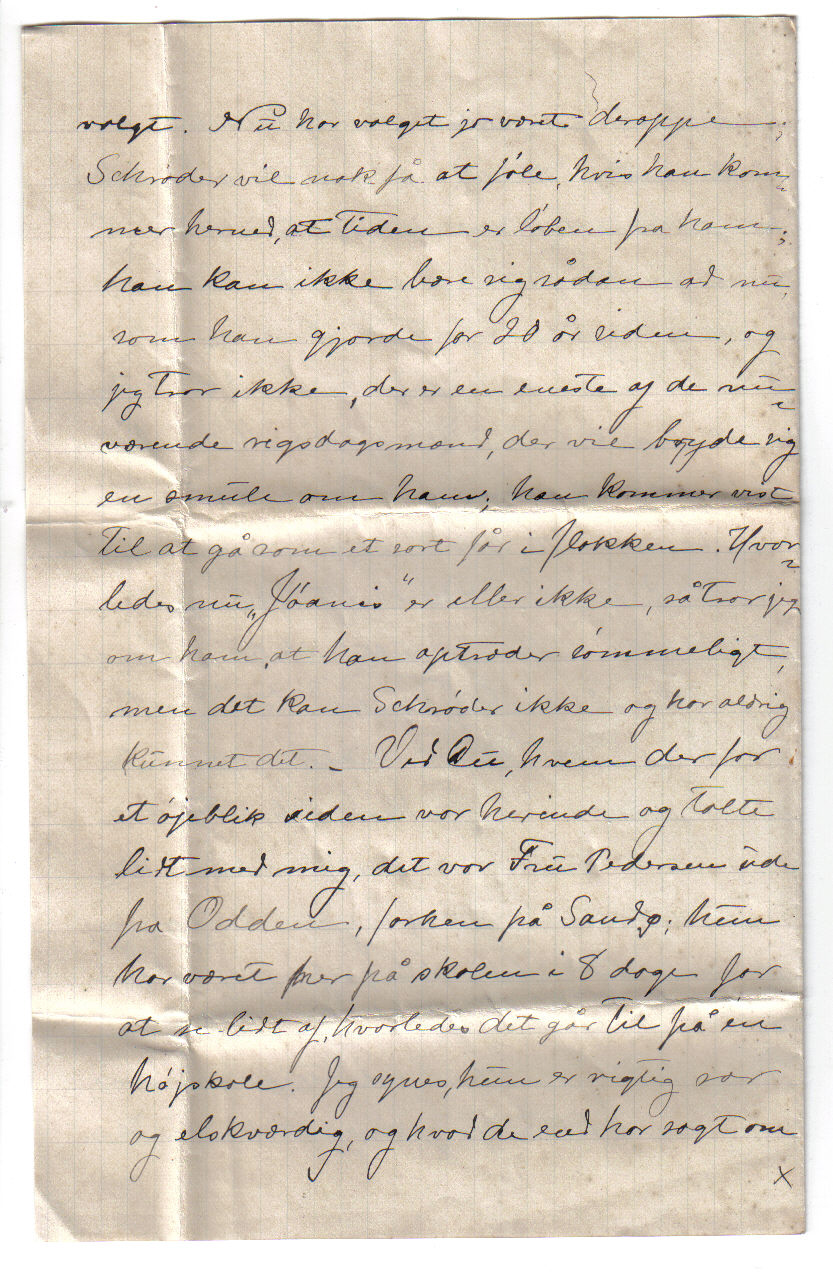 valgt. Nu har valget jo været deroppe;
Schrøder vil nok få at føle, hvis han kom-
mer herned, at tiden er løben fra ham;
han kan ikke bære sig sådan ad nu,
som han gjorde for 20 år siden, og
jeg tror ikke, der er en eneste af de nu-
værende rigsdagsmænd, der vil bryde sig
en smule om ham; han kommer vist
til at gå som et sort får i flokken. Hvor-
ledes nu „Jóanis“ er eller ikke, så tror jeg
om ham, at han optræder sømmeligt,
men det kan Schrøder ikke og har aldrig
kunnet det. – Ved Du, hvem der for
et øjeblik siden var herinde og talte
lidt med mig, det var Fru Pedersen ude
fra Odden, forhen på Sandø; hun
har været her på skolen i 8 dage for
at se lidt af, hvorledes det går til på en
højskole. Jeg synes, hun er vigtig rar
og elskværdig, og hvad de end har sagt om
x